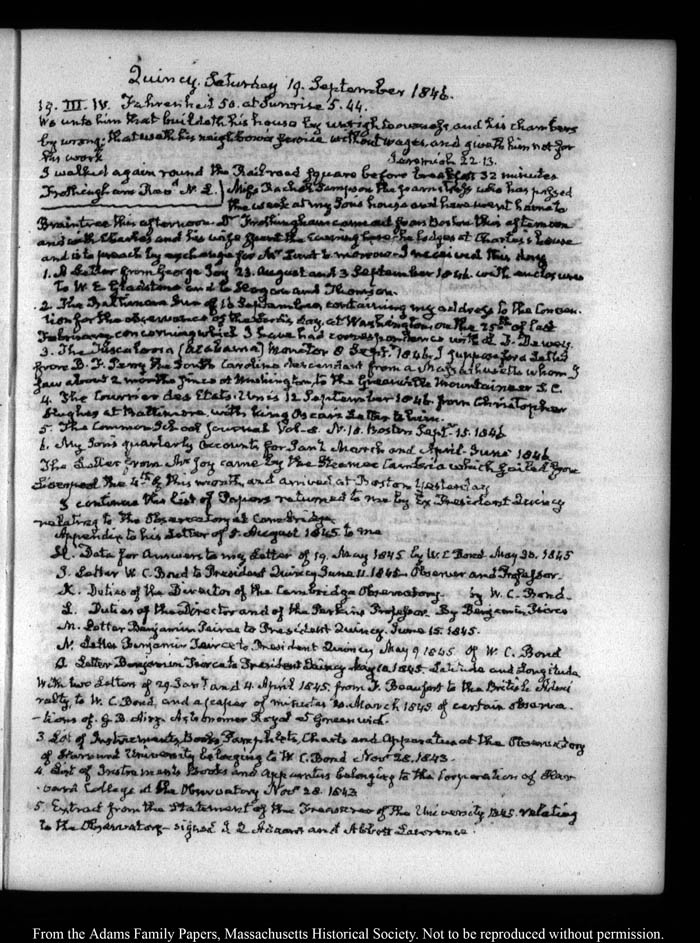 Quincy. Saturday 19. September 1846.
19. III. IV. Fahrenheit 50. at Sunrise 5.44.
Wo unto him that buildeth his house by unrighteousness, and his chambers
by wrong: that useth his neighbour's service without wages, and giveth him not for
his work Jeremiah 22.13.
I walked again round the Railroad square before breakfast 32 minutes
Frothingham Revd. N. L. } Miss Rachel Simpson the seamstress who has passed
the week at my Sons house and here went home to
Braintree this afternoon. Dr Frothingham came out from Boston this afternoon
and with Charles and his wife spent the Evening here. he lodges at Charles's house
and is to preach by exchange for Mr Lunt to morrow. I received this day
1. A Letter from George Joy 23. August and 3 September 1846. with enclosures
to W. E Gladstone and to and Thomson.
2. The Baltimore Sun of 16 September, containing my address to the Conven-
tion for the observance of the Lord's day, at Washington, on the 25th of last
February concerning which I have had correspondence with J. Dewey.
3. The Tuscaloosa (Alabama) Monitor 8 Septr. 1846, I suppose for a Letter
from B. F. Perry the South Carolina descendant from a Massachusetts whom I
saw about 2 months since at Washington, to the Greenville Mountaineer S.C.
4. The Courrier des Etats-Unis 12 September 1846 from Christopher
Hughes at Baltimore, with King Oscars Letter to him.
5. The Common School Journal Vol. 8. N. 18. Boston Septr. 15. 1846
6. My Sons quarterly Accounts for Jany. March and April June 1846
The Letter from Mr Joy came by the Steamer Cambria which sailed from
Liverpool the 4th of this month, and arrived at Boston yesterday
I continue this list of Papers returned to me by Ex President Quincy
relating to the Observatory at Cambridge.
Appendix to his Letter of 5. August 1845 to me
H. Data for Answers to my Letter of 19. May 1845 by W. C Bond. May 20. 1845
I. Letter W. C. Bond to President Quincy June 11. 1845. Observer and Professor.
K. Duties of the Director of the Cambridge Observatory. by W. C. Bond.
L. Duties of the Director and of the Perkins Professor. By Benjamin Peirce
M. Letter Benjamin Peirce to President Quincy. June 15. 1845.
N. Letter Benjamin Peirce to President Quincy May 9 1845 of W. C. Bond
O. Letter Benjamin Peirce to President Quincy May 10. 1845. Latitude and Longitude.
With two Letters of 29. Jany. and 4. April 1845. from F. Beaufort to the British Admi-
ralty, to W. C. Bond, and a paper of minutes 20. March 1845 of certain observa-
-tions of G. B. Airy Astronomer Royal at Greenwich.
3. List of Instruments, Books, Pamphlets, Charts and Apparatus at the Observatory
of Harvard University belonging to W. C. Bond Novr. 28. 1843.
4. List of Instruments Books and Apparatus belonging to the Corporation of Har-
-vard College at the Observatory Novr 28. 1843
5. Extract from the Statement of the Treasurer of the University 1845. relating
to the Observatory - signed J. Q. Adams and Abbott Lawrence.
From the Adams Family Papers, Massachusetts Historical Society. Not to be reproduced without permission.